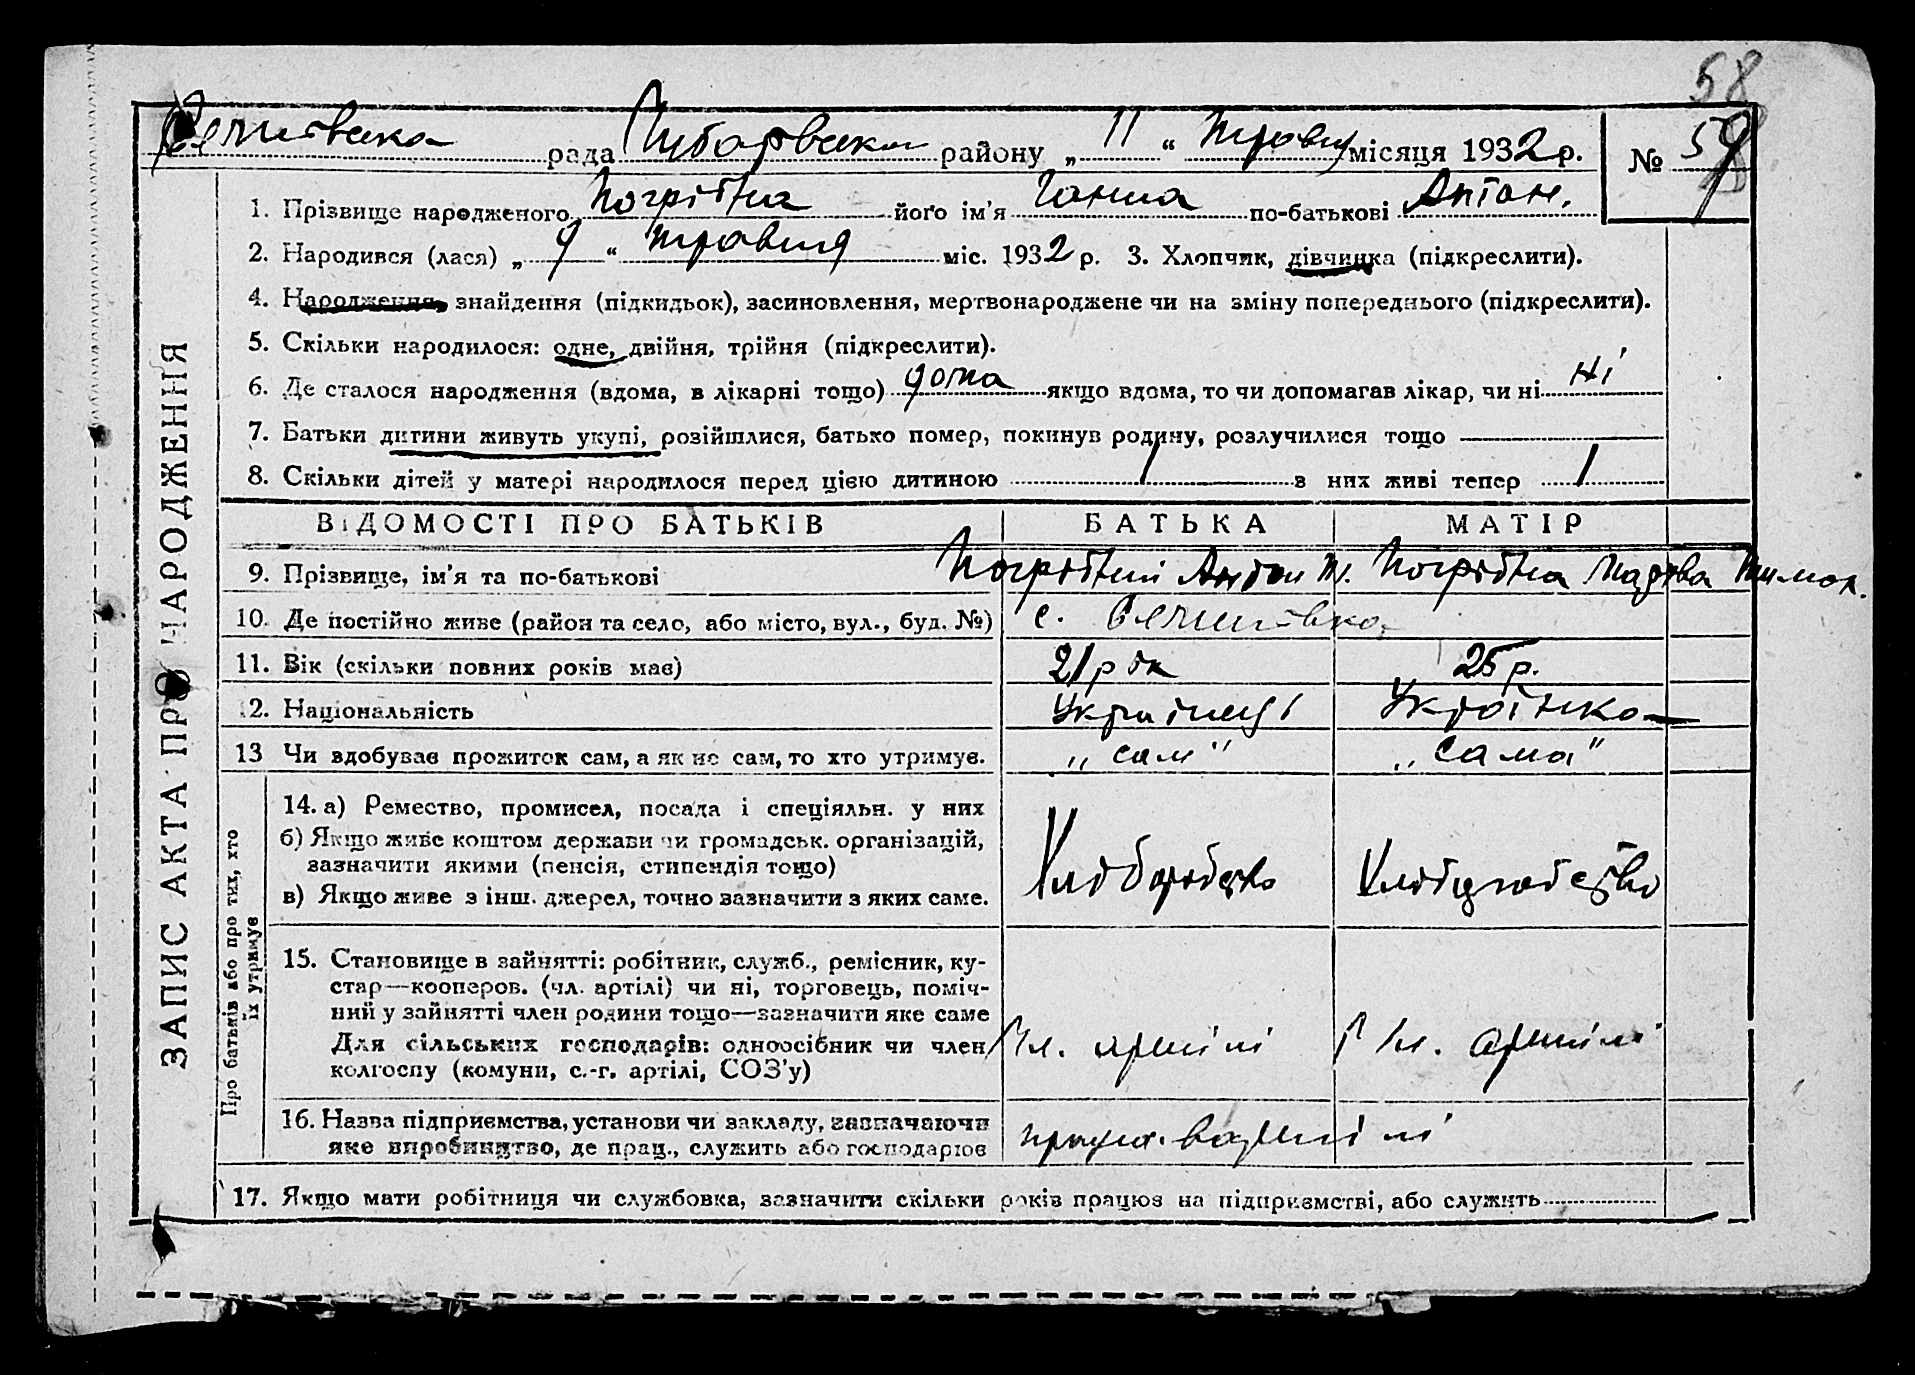 58
рада Чубарівська району „ 11 “ Травня місяця 1932 р. № 59
ЗАПИС АКТА ПРО НАРОДЖЕННЯ
1. Прізвище народженого Погрібна його ім'я Ганна по-батькові Антон.
2. Народився (лася) „ 9 “ травня міс. 1932 р. 3. Хлопчик, дівчинка (підкреслити).
4. Народження, знайдення (підкидьок), засиновлення, мертвонароджене чи на зміну попереднього (підкреслити).
5. Скільки народилося: одне, двійня, трійня (підкреслити).
6. Де сталося народження (вдома, в лікарні тощо) дома якщо вдома, то чи допомагав лікар, чи ні ні
7. Батьки дитини живуть укупі, розійшлися, батько помер, покинув родину, розлучилися тощо
8. Скільки дітей у матері народилося перед цією дитиною 1 в них живі тепер 1
ВІДОМОСТІ ПРО БАТЬКІВ БАТЬКА МАТІР
9. Прізвище, ім'я та по-батькові Погрібний Антон Погрібна Тимох.
10. Де постійно живе (район та село, або місто, вул., буд. №) с.
11. Вік (скільки повних років має) 21 рік 25 р.
12. Національність Українці Українка
13 Чи здобуває прожиток сам, а як не сам, то хто утримує. „сам" „сама"
Про батьків або про тих, хто
їх утримує
14. а) Ремество, промисел, посада і спеціяльн. у них
б) Якщо живе коштом держави чи громадськ. організацій,
зазначити якими (пенсія, стипендія тощо)
в) Якщо живе з інш. джерел, точно зазначити з яких саме.
15. Становище в зайнятті: робітник, служб., ремісник, ку-
стар—кооперов. (чл. артілі) чи ні, торговець, поміч-
ний у зайнятті член родини тощо—зазначити яке саме
Для сільських господарів: одноосібник чи член
колгоспу (комуни, с.-г. артілі, СОЗ'у) Чл. артілі Чл. артілі
16. Назва підприємства, установи чи закладу, зазначаючи
яке виробництво, де прац., служить або господарює
17. Якщо мати робітниця чи службовка, зазначити скільки років працює на підприємстві, або служить